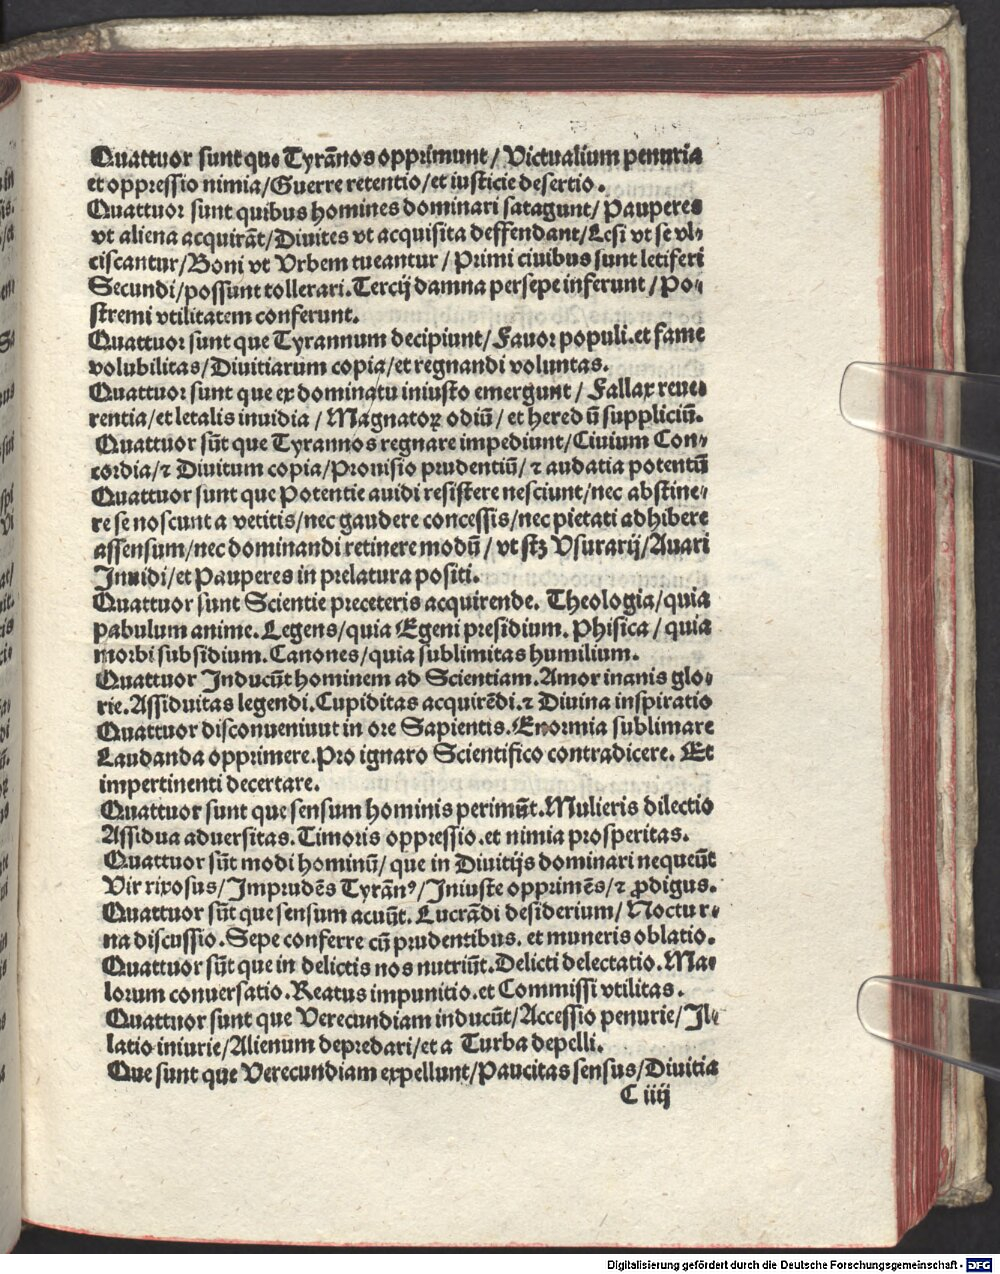 Quattuor sunt que Tyrãnos opprimunt/ Victualium penuria
et oppressio nimia/Guerre retentio/et iusticie desertio.
Quattuor sunt quibus homines dominari satagunt/ Pauperes
vt aliena acquirãt/Diuites vt acquisita deffendant/Lesi vt se vl⸗
ciscantur/Boni vt Vrbem tueantur/ Primi ciuibus sunt letiferi
Secundi/possunt tollerari.Tercij damna persepe inferunt/Po⸗
stremi vtilitatem conferunt.
Quattuor sunt que Tyrannum decipiunt/ Fauor populi.et fame
volubilitas/Diuitiarum copia/et regnandi voluntas.
Quattuor sunt que ex dominatu iniusto emergunt/ Fallax reue⸗
rentia/et letalis inuidia/ Magnatoꝝ odiũ/ et hered ũ suppliciũ.
Quattuor sũt que Tyrannos regnare impediunt/Ciuium Con⸗
cordia/⁊ Diuitum copia/Prouisio prudentiũ/ ⁊ audatia potentũ
Quattuor sunt que Potentie auidi resistere nesciunt/nec abstine⸗
re se noscunt a vetitis/nec gaudere concessis/nec pietati adhibere
assensum/nec dominandi retinere modũ/ vt stꝫ Vsurarij/Auari
Inuidi/et Pauperes in prelatura positi.
Quattuor sunt Scientie preceteris acquirende. Theologia/quia
pabulum anime.Legens/quia Egeni presidium. Phisica/ quia
morbi subsidium.Canones/quia sublimitas humilium.
Quattuor Inducũt hominem ad Scientiam.Amor inanis glo⸗
rie.Assiduitas legendi.Cupiditas acquirẽdi.⁊ Diuina inspiratio
Quattuor disconueniuut in ore Sapientis.Enormia sublimare
Laudanda opprimere.Pro ignaro Scientifico contradicere. Et
impertinenti decertare.
Quattuor sunt que sensum hominis perimũt.Mulieris dilectio
Assidua aduersitas.Timoris oppressio.et nimia prosperitas.
Quattuor sũt modi hominũ/ que in Diuitijs dominari nequeũt
Vir rixosus/Imprudẽs Tyrãnꝰ/Iniuste opprimẽs/⁊ ꝓdigus.
Quattuor sũt que sensum acuũt. Lucrãdi desiderium/ Noctur⸗
na discussio.Sepe conferre cũ prudentibus. et muneris oblatio.
Quattuor sũt que in delictis nos nutriũt.Delicti delectatio.Ma⸗
lorum conuersatio.Reatus impunitio.et Commissi vtilitas.
Quattuor sunt que Verecundiam inducũt/Accessio penurie/Il⸗
latio iniurie/Alienum depredari/et a Turba depelli.
Que sunt que Verecundiam expellunt/Paucitas sensus/Diuitia
C iiij
Digitalisierung gefördert durch die Deutsche Forschungsgemeinschaft - DFG